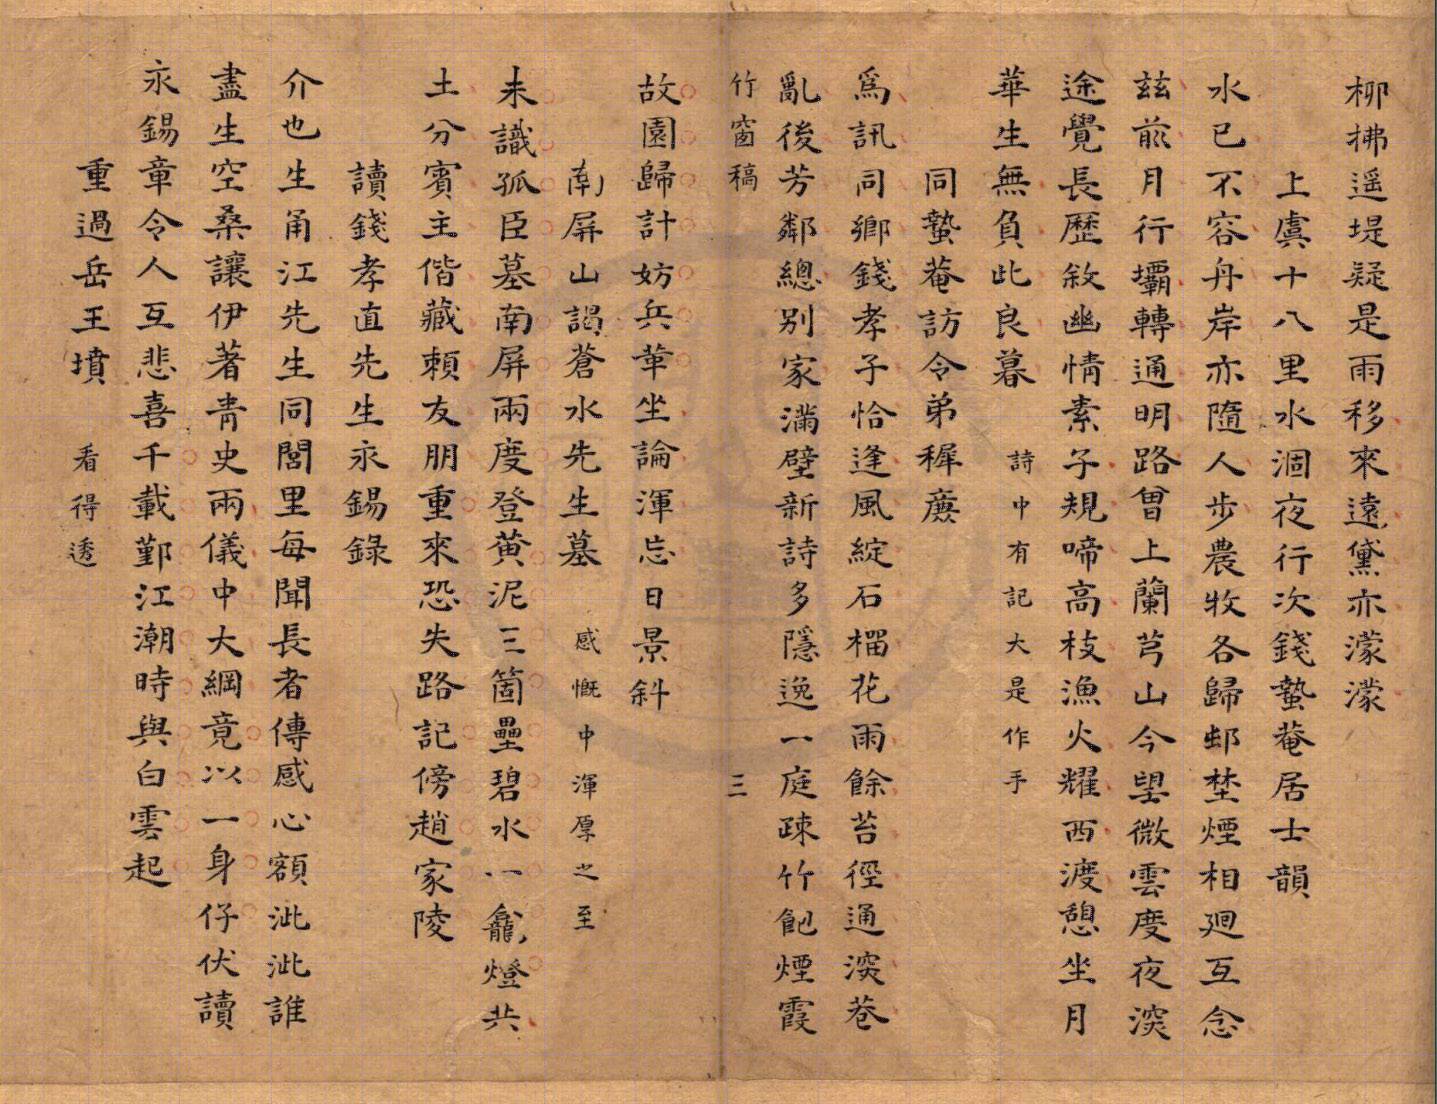 柳拂遥堤疑是雨移來遠黛亦濛濛
上虞十八里水涸夜行次錢蟄菴居士韻
水已不容舟岸亦隨人步農牧各歸邨埜煙相廻互念
兹前月行壩轉通明路曾上蘭芎山今朢微雲度夜深
途覺長歷敘幽情素子規啼高枝漁火耀西渡憩坐月
華生無負此良暮 詩中有記大是作手
同蟄菴訪令弟穉廌
爲訊同鄉錢孝子恰逢風綻石榴花雨餘苔徑通深巷
亂後芳鄰總别家滿壁新詩多隱逸一庭疎竹飽煙霞
竹窗稿 三
故園歸計妨兵華坐論渾忘日景斜
南屏山謁蒼水先生墓 感慨中渾厚之至
未識孤臣墓南屏兩度登黄泥三箇壘碧水一龕燈共
土分賓主偕藏頼友朋重來恐失路記傍趙家陵
讀錢孝直先生永錫錄
介也生甬江先生同閭里每聞長者傳感心額泚泚誰
盡生空桑讓伊著青史兩儀中大綱竟以一身仔伏讀
永錫章令人互悲喜千載鄞江潮時與白雲起
重過岳王墳 看得透